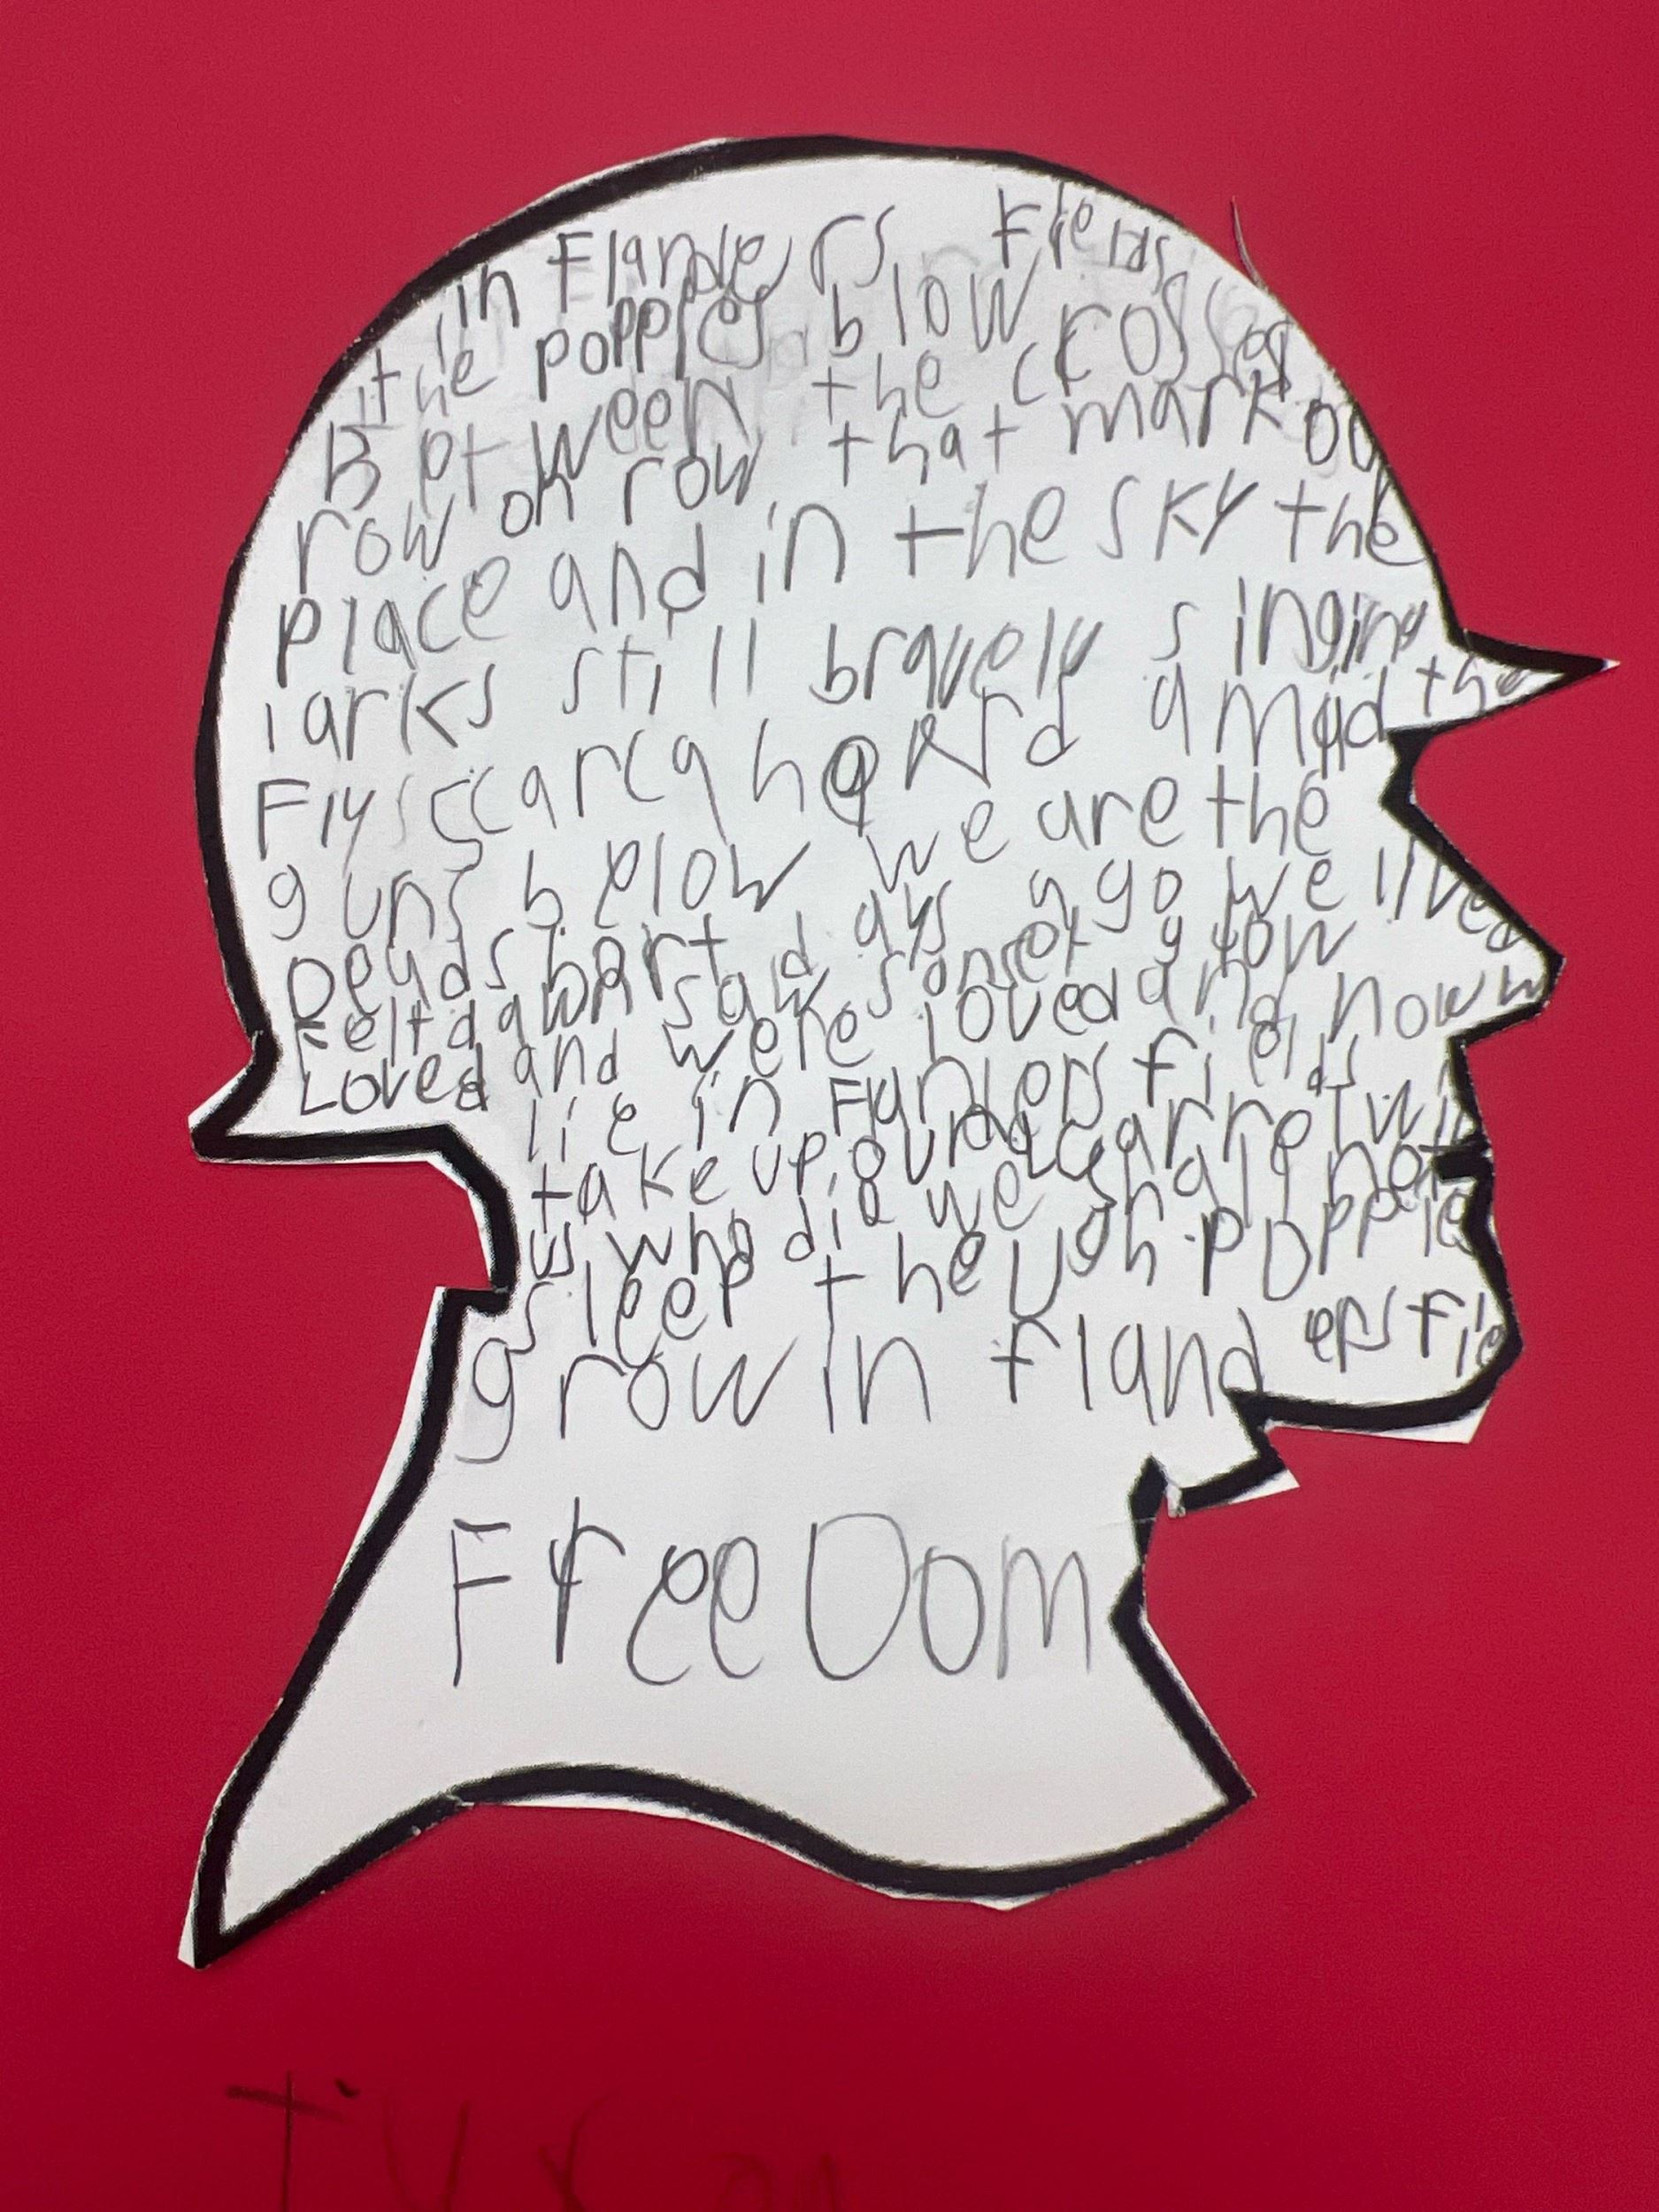 in Flanders Fields
the poppies blow
Between the crosses
row on row that mark ou
place and in the sky the
larks still bravely singing
Fly scarca heard amid the
guns below we are the
Deads hort d ays ago we lived
Felt dawn saw sonset glow
Loved and were loved and now w
lie in Flanders fields
take up our
us who die we shall not
sleep theugh poppie
grow in fland ers fie
FreeDom